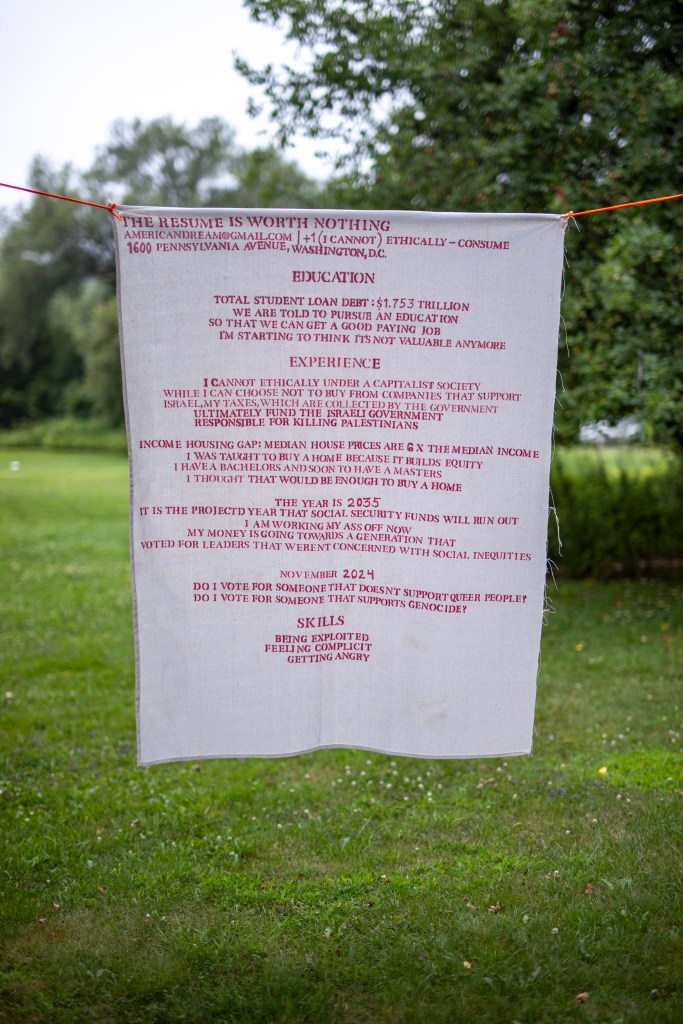 THE RESUME IS WORTH NOTHING
AMERICANDREAM@GMAIL.COM | +1 (I CANNOT) ETHICALLY-CONSUME
1600 PENNSYLVANIA AVENUE, WASHINGTON, D.C.
EDUCATION
TOTAL STUDENT LOAN DEBT: $1.753 TRILLION
WE ARE TOLD TO PURSUE AN EDUCATION
SO THAT WE CAN GET A GOOD PAYING JOB
I'M STARTING TO THINK IT'S NOT VALUABLE ANYMORE
EXPERIENCE
I CANNOT ETHICALLY UNDER A CAPITALIST SOCIETY
WHILE I CAN CHOOSE NOT TO BUY FROM COMPANIES THAT SUPPORT
ISRAEL, MY TAXES, WHICH ARE COLLECTED BY THE GOVERNMENT
ULTIMATELY FUND THE ISRAELI GOVERNMENT
RESPONSIBLE FOR KILLING PALESTINIANS
INCOME HOUSING GAP: MEDIAN HOUSE PRICES ARE 6X THE MEDIAN INCOME
I WAS TAUGHT TO BUY A HOME BECAUSE IT BUILDS EQUITY
I HAVE A BACHELORS AND SOON TO HAVE A MASTERS
I THOUGHT THAT WOULD BE ENOUGH TO BUY A HOME
THE YEAR IS 2035
IT IS THE PROJECTD YEAR THAT SOCIAL SECURITY FUNDS WILL RUN OUT
I AM WORKING MY ASS OFF NOW
MY MONEY IS GOING TOWARDS A GENERATION THAT
VOTED FOR LEADERS THAT WERENT CONCERNED WITH SOCIAL INEQUITIES
NOVEMBER 2024
DO I VOTE FOR SOMEONE THAT DOESNT SUPPORT QUEER PEOPLE?
DO I VOTE FOR SOMEONE THAT SUPPORTS GENOCIDE?
SKILLS
BEING EXPLOITED
FEELING COMPLICIT
GETTING ANGRY